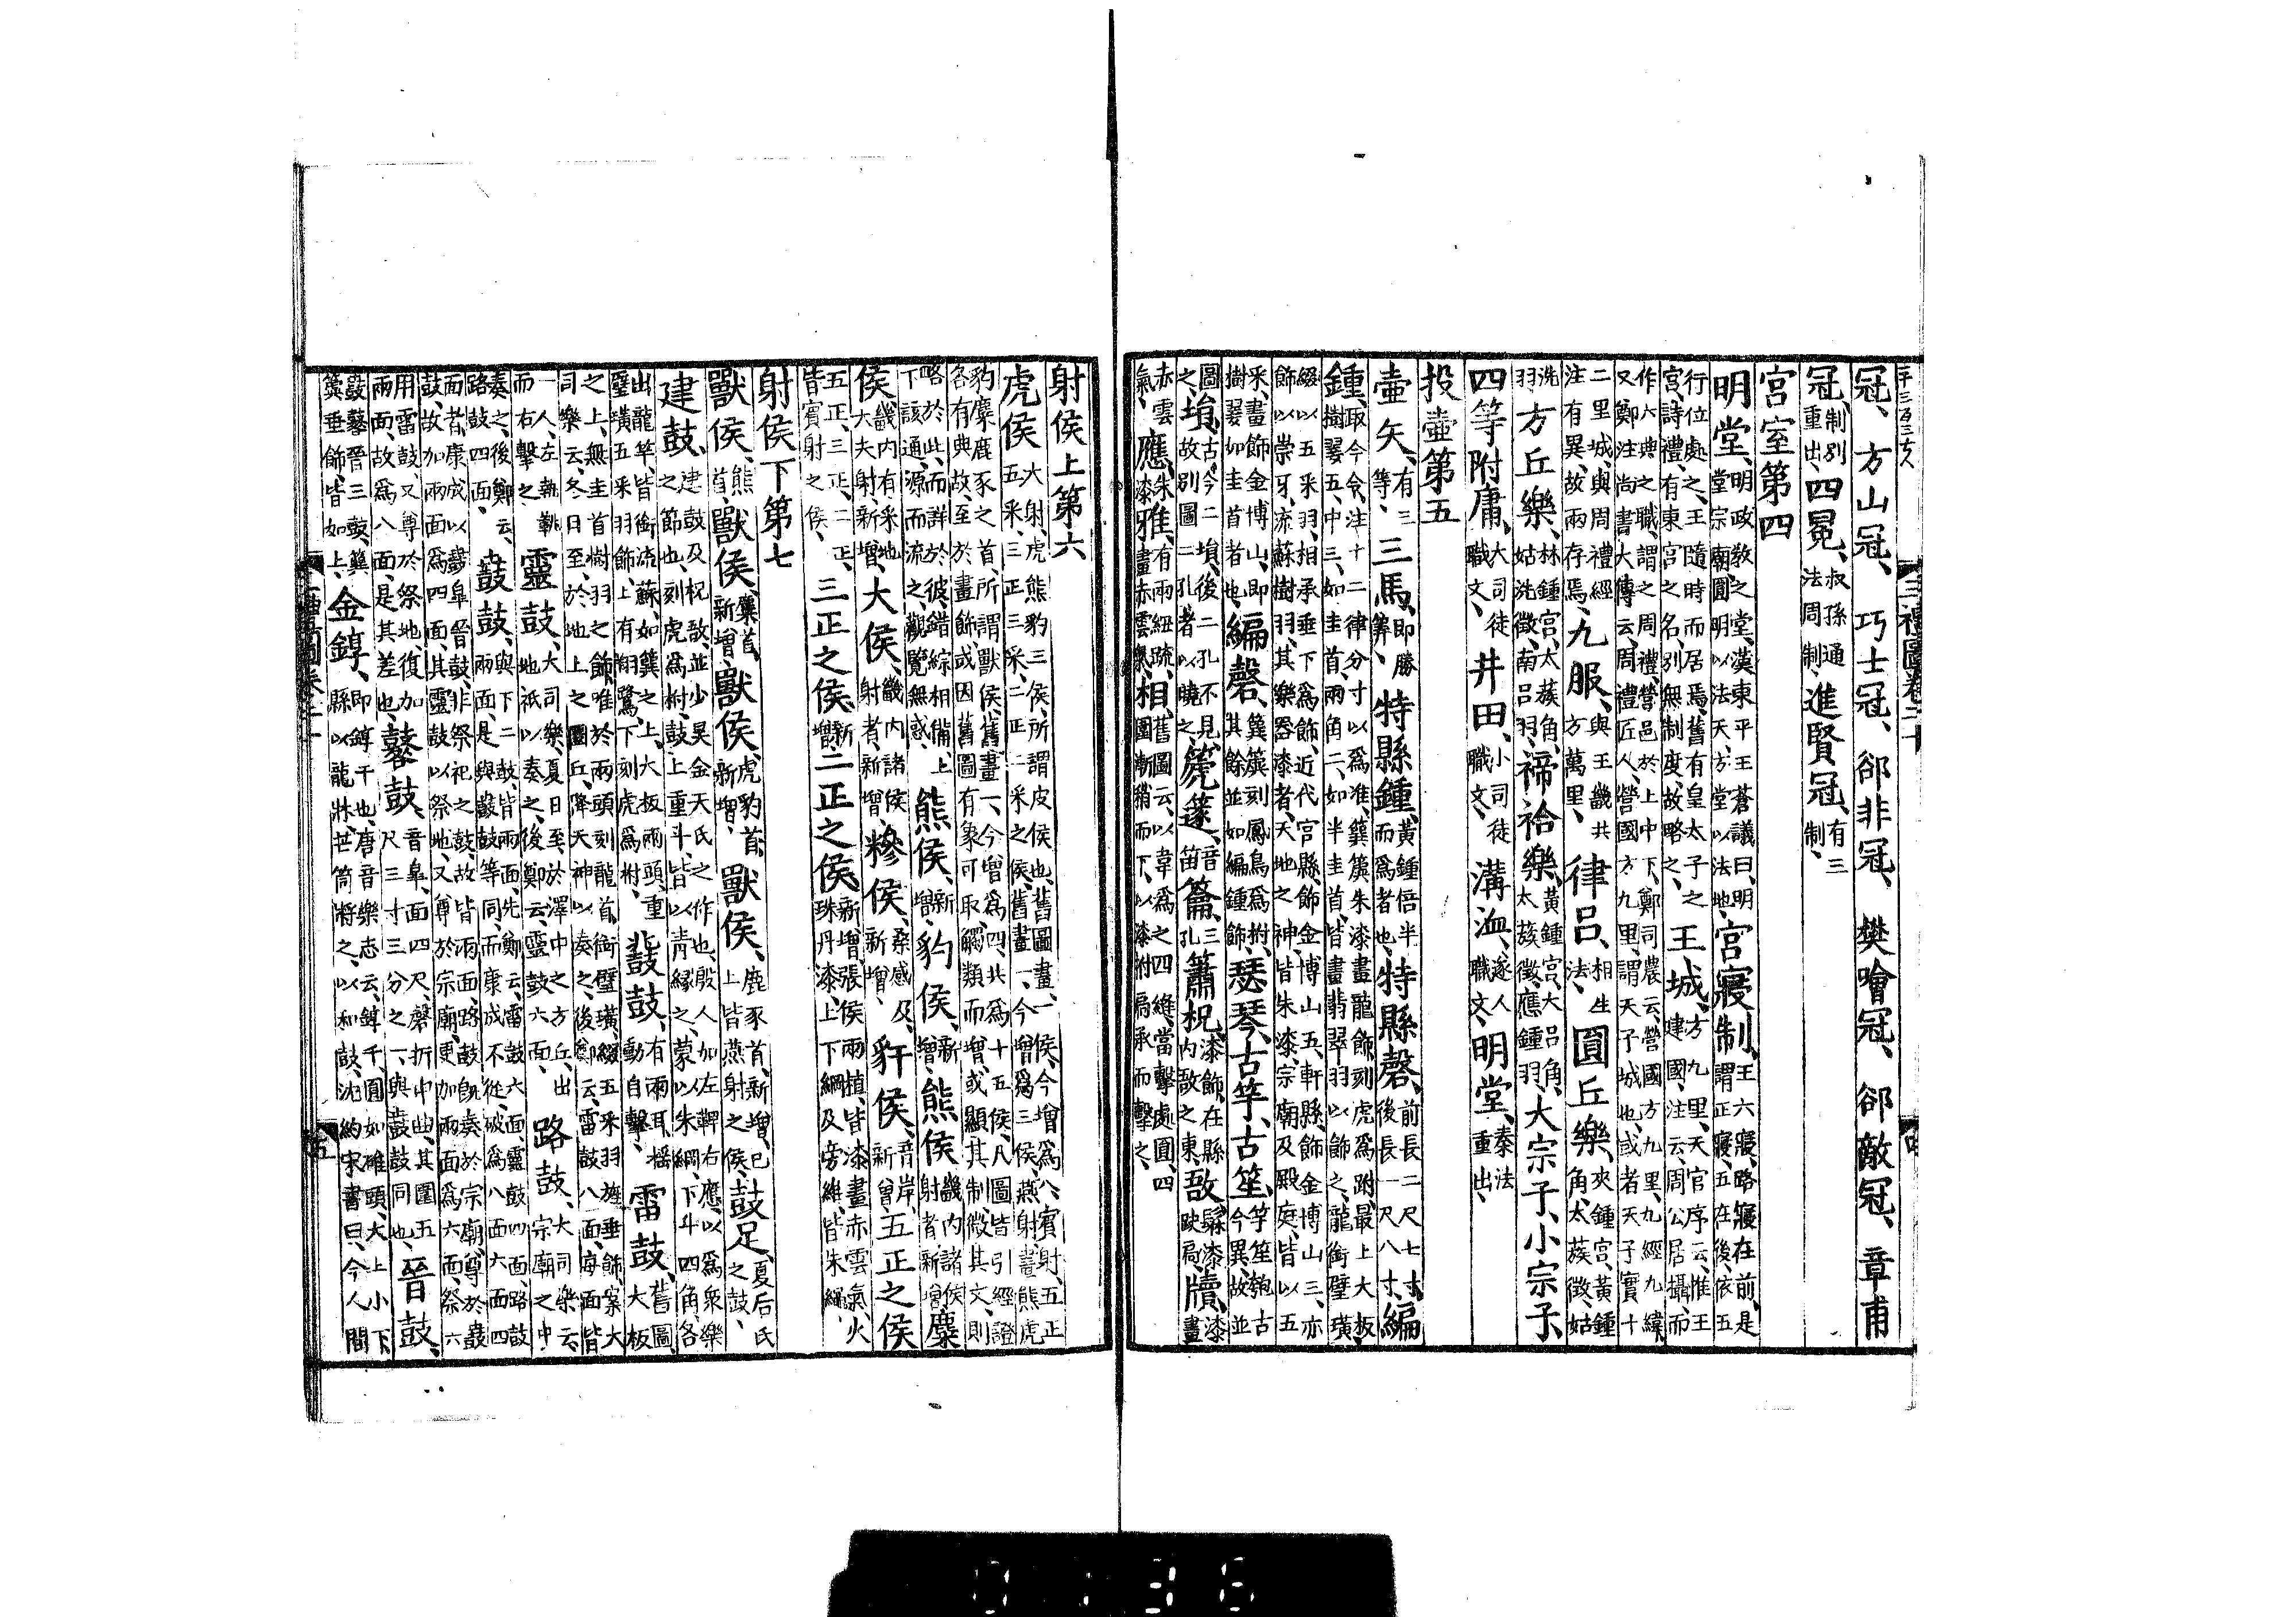 冠、方山冠、巧士冠、郤非冠、樊噲冠、郤敵冠、章甫
冠、制別重出、四冕、叔孫通法周制、進賢冠、有三制、
宮室第四
明堂、明政敎之堂、漢東平王蒼議曰、明堂宗廟圓明以法天、方堂以法地、宮寢制、王六寢、路寢在前、是謂正寢、五在後、依五
行位處之、王隨時而居焉、舊有皇太子之宮、詩禮有東宮之名、別無制度、故略之、王城、方九里、天官序云、惟王建國、注云、周公居攝、而
作六典之職、謂之周禮、營邑於土中下、鄭司農云、營國方九里、九經九緯、又鄭注尚書大傳云、周禮匠人、營國方九里、謂天子城也、或者天子實十
二里城、與周禮經注有異、故兩存焉、九服、與王畿共方萬里、律呂、相生法、圓丘樂、夾鍾宮、黃鍾角、太蔟徵、姑
洗羽、方丘樂、林鍾宮、太蔟角、姑洗徵、南呂羽、禘祫樂、黃鍾宮、大呂角、太蔟徵、應鍾羽、大宗子、小宗子、
四等附庸、大司徒職文、井田、小司徒職文、溝洫、遂人職文、明堂、秦法重出、
投壺第五
壺矢、有三等、三馬、即勝筭、特縣鍾、黃鍾倍半而爲者也、特縣磬、前長二尺七寸、後長一尺八寸、編
鍾、取今令、注十二律分寸以爲准、簨簴朱漆畫龍飾、刻虎爲跗、最上大板、樹翣五、中三、如圭首、兩角二、如半圭首、皆畫翡翠羽以飾之、龍銜璧璜
綴以五采羽、相承垂下爲飾、近代宮縣、飾金博山五、軒縣、飾金博山三、亦飾以崇牙、流蘇樹羽、其樂器漆者、天地之神、皆朱漆、宗廟及殿庭、皆以五
采畫飾、金博山、即簨簴刻鳳鳥爲跗、樹翣如圭首者也、編磬、其餘並如編鍾飾、瑟琴、古竽、古笙、竽笙匏、古今異、故並
圖、塤、古今二塤、後二孔不見、故別圖二孔者以曉之、篪篴、音笛、籥、三孔、簫、柷、漆飾、在縣內敔之東、敔、髹漆、趺扃、牘、漆畫
赤雲氣、應、朱漆、雅、有兩紐疏、畫赤雲氣、相、舊圖云、以韋爲之、四縫、當擊處圓、四圖漸稍而下、以漆跗扃承而擊之、
射侯上第六
虎侯、大射、虎熊豹三侯、所謂皮侯也、舊圖畫一侯、今增爲八、賓射、五正五采、三正三采、二正二采之侯、舊畫一、今增爲三侯、燕射、畫熊虎
豹麋鹿豕之首、所謂獸侯、舊畫一、今增爲四、共爲十五侯、凡圖皆引經證、各有典故、至於畫飾、或因舊圖有象可取、觸類而增、或顯其制、微其文、則
略於此、而詳於彼、錯綜相備、上下該通、源而流之、觀覽無惑、熊侯、新增、豹侯、新增、熊侯、畿內諸侯射者、新增、麋
侯、畿內有采地大夫射、新增、大侯、畿內諸侯射者、新增、糝侯、桑感及、新增、豻侯、音岸、新曾、五正之侯、
五正、三正、二正、皆賓射之侯、三正之侯、新增、二正之侯、新增、張侯兩植、皆漆畫赤雲氣火珠、丹漆、上下綱及旁維、皆朱繩、
射侯下第七
獸侯、熊首、獸侯、麋首、新增、獸侯、虎豹首、新增、獸侯、鹿豕首、新增、已上皆燕射之侯、鼓足、夏后氏之鼓、
建鼓、建鼓及柷敔、並少昊金天氏之作也、殷人加左鞞右應、以爲衆樂之節也、刻虎爲跗、鼓上重斗、皆以靑緣之、蒙以朱綱、下斗四角、各
出龍竿、皆銜流蘇、如簨之上、大板兩頭、重璧璜五采羽飾、上有翔鷺、下刻虎爲跗、鼗鼓、有兩耳、搖動自擊、雷鼓、舊圖、大板
之上、無圭首樹羽之飾、唯於兩頭刻龍首、銜璧璜、綴五采羽旌、垂飾、案大司樂云、冬日至、於地上之圜丘、降天神以奏之、後鄭云、雷鼓八面、每面皆
一人、左執鞉而右擊之、靈鼓、大司樂、夏日至、於澤中之方丘、出地祇以奏之、後鄭云、靈鼓六面、路鼓、大司樂云、宗廟之中
奏之、後鄭云、路鼓四面、鼖鼓、兩面、與下二鼓、皆兩面、先鄭云、雷鼓六面、靈鼓四面、路鼓兩面、是與鼖鼓等同、而康成不從、破爲八面六面四
面者、康成以鼖皐晉鼓、非祭祀之鼓、故皆兩面、路鼓旣奏於宗廟、尊於鼖鼓、故加兩面爲四面、其靈鼓以祭地、又尊於宗廟、更加兩面爲六面、祭六
用雷鼓、又尊於祭地、復加兩面、故爲八面、是其差也、鼛鼓、音皐、面四尺、磬折中曲、其圍五尺三寸三分之一、與鼖鼓同也、晉鼓、
鼖鼛晉三鼓、簨簴垂飾、皆如上、金錞、即錞于也、唐音樂志云、錞于、圓如碓頭、大上小下、縣以龍牀、芒筒將之、以和鼓、沈約宋書曰、今人間